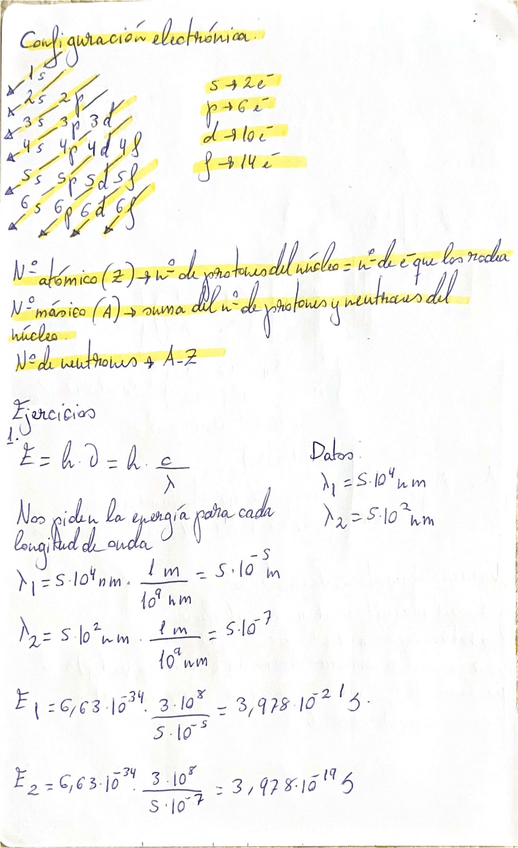 Configuración electrónica.
1s
2s 2p
3s 3p 3d
4s 4p 4d 4f
5s 5p 5d 5f
6s 6p 6d 6f
s → 2e⁻
p → 6e⁻
d → 10e⁻
f → 14e⁻
Nº atómico (Z) → nº de protones del núcleo = nº de e⁻ que los rodea
Nº másico (A) → suma del nº de protones y neutrones del
núcleo.
Nº de neutrones → A-Z
Ejercicios
1.
E = h · ν = h · c/λ
Datos:
λ₁ = 5·10⁴ nm
λ₂ = 5·10² nm
Nos piden la energía para cada
longitud de onda
λ₁ = 5·10⁴ nm · 1 m/10⁹ nm = 5·10⁻⁵ m
λ₂ = 5·10² nm · 1 m/10⁹ nm = 5·10⁻⁷
E₁ = 6,63·10⁻³⁴ · 3·10⁸/5·10⁻⁵ = 3,978·10⁻²¹ J.
E₂ = 6,63·10⁻³⁴ · 3·10⁸/5·10⁻⁷ = 3,978·10⁻¹⁹ J